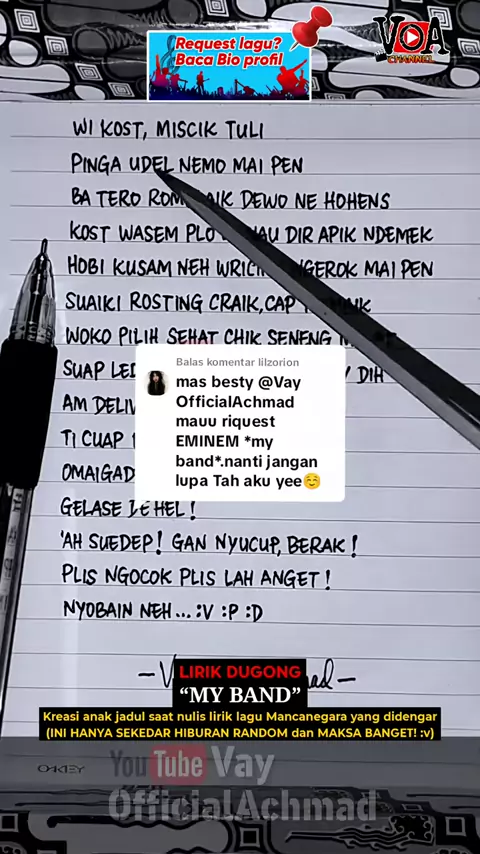 Request lagu?
Baca Bio profil
VOA
CHANNEL
WI KOST, MISCIK TULI
PINGA UDEL NEMO MAI PEN
BA TERO DEWO NE HOHENS
KOST WASEM DIR APIK NDEMEK
HOBI KUSAM NEH NGEROK MAI PEN
SUAIKI ROSTING CRAIK, CAP
WOKO PILIH SEHAT CHIK SENENG
SUAP DIH
AM
TI CUAP
OMAIGAD
GELASE HEL!
'AH SUEDEP! GAN NYUCUP, BERAK!
PLIS NGOCOK PLIS LAH ANGET!
NYOBAIN NEH... :V :P :D
Balas komentar lilzorion
mas besty @Vay
OfficialAchmad
mauu riquest
EMINEM *my
band*.nanti jangan
lupa Tah aku yee☺️
LIRIK DUGONG
"MY BAND"
Kreasi anak jadul saat nulis lirik lagu Mancanegara yang didengar
(INI HANYA SEKEDAR HIBURAN RANDOM dan MAKSA BANGET! :v)
OAKLEY
YouTube Vay
OfficialAchmad